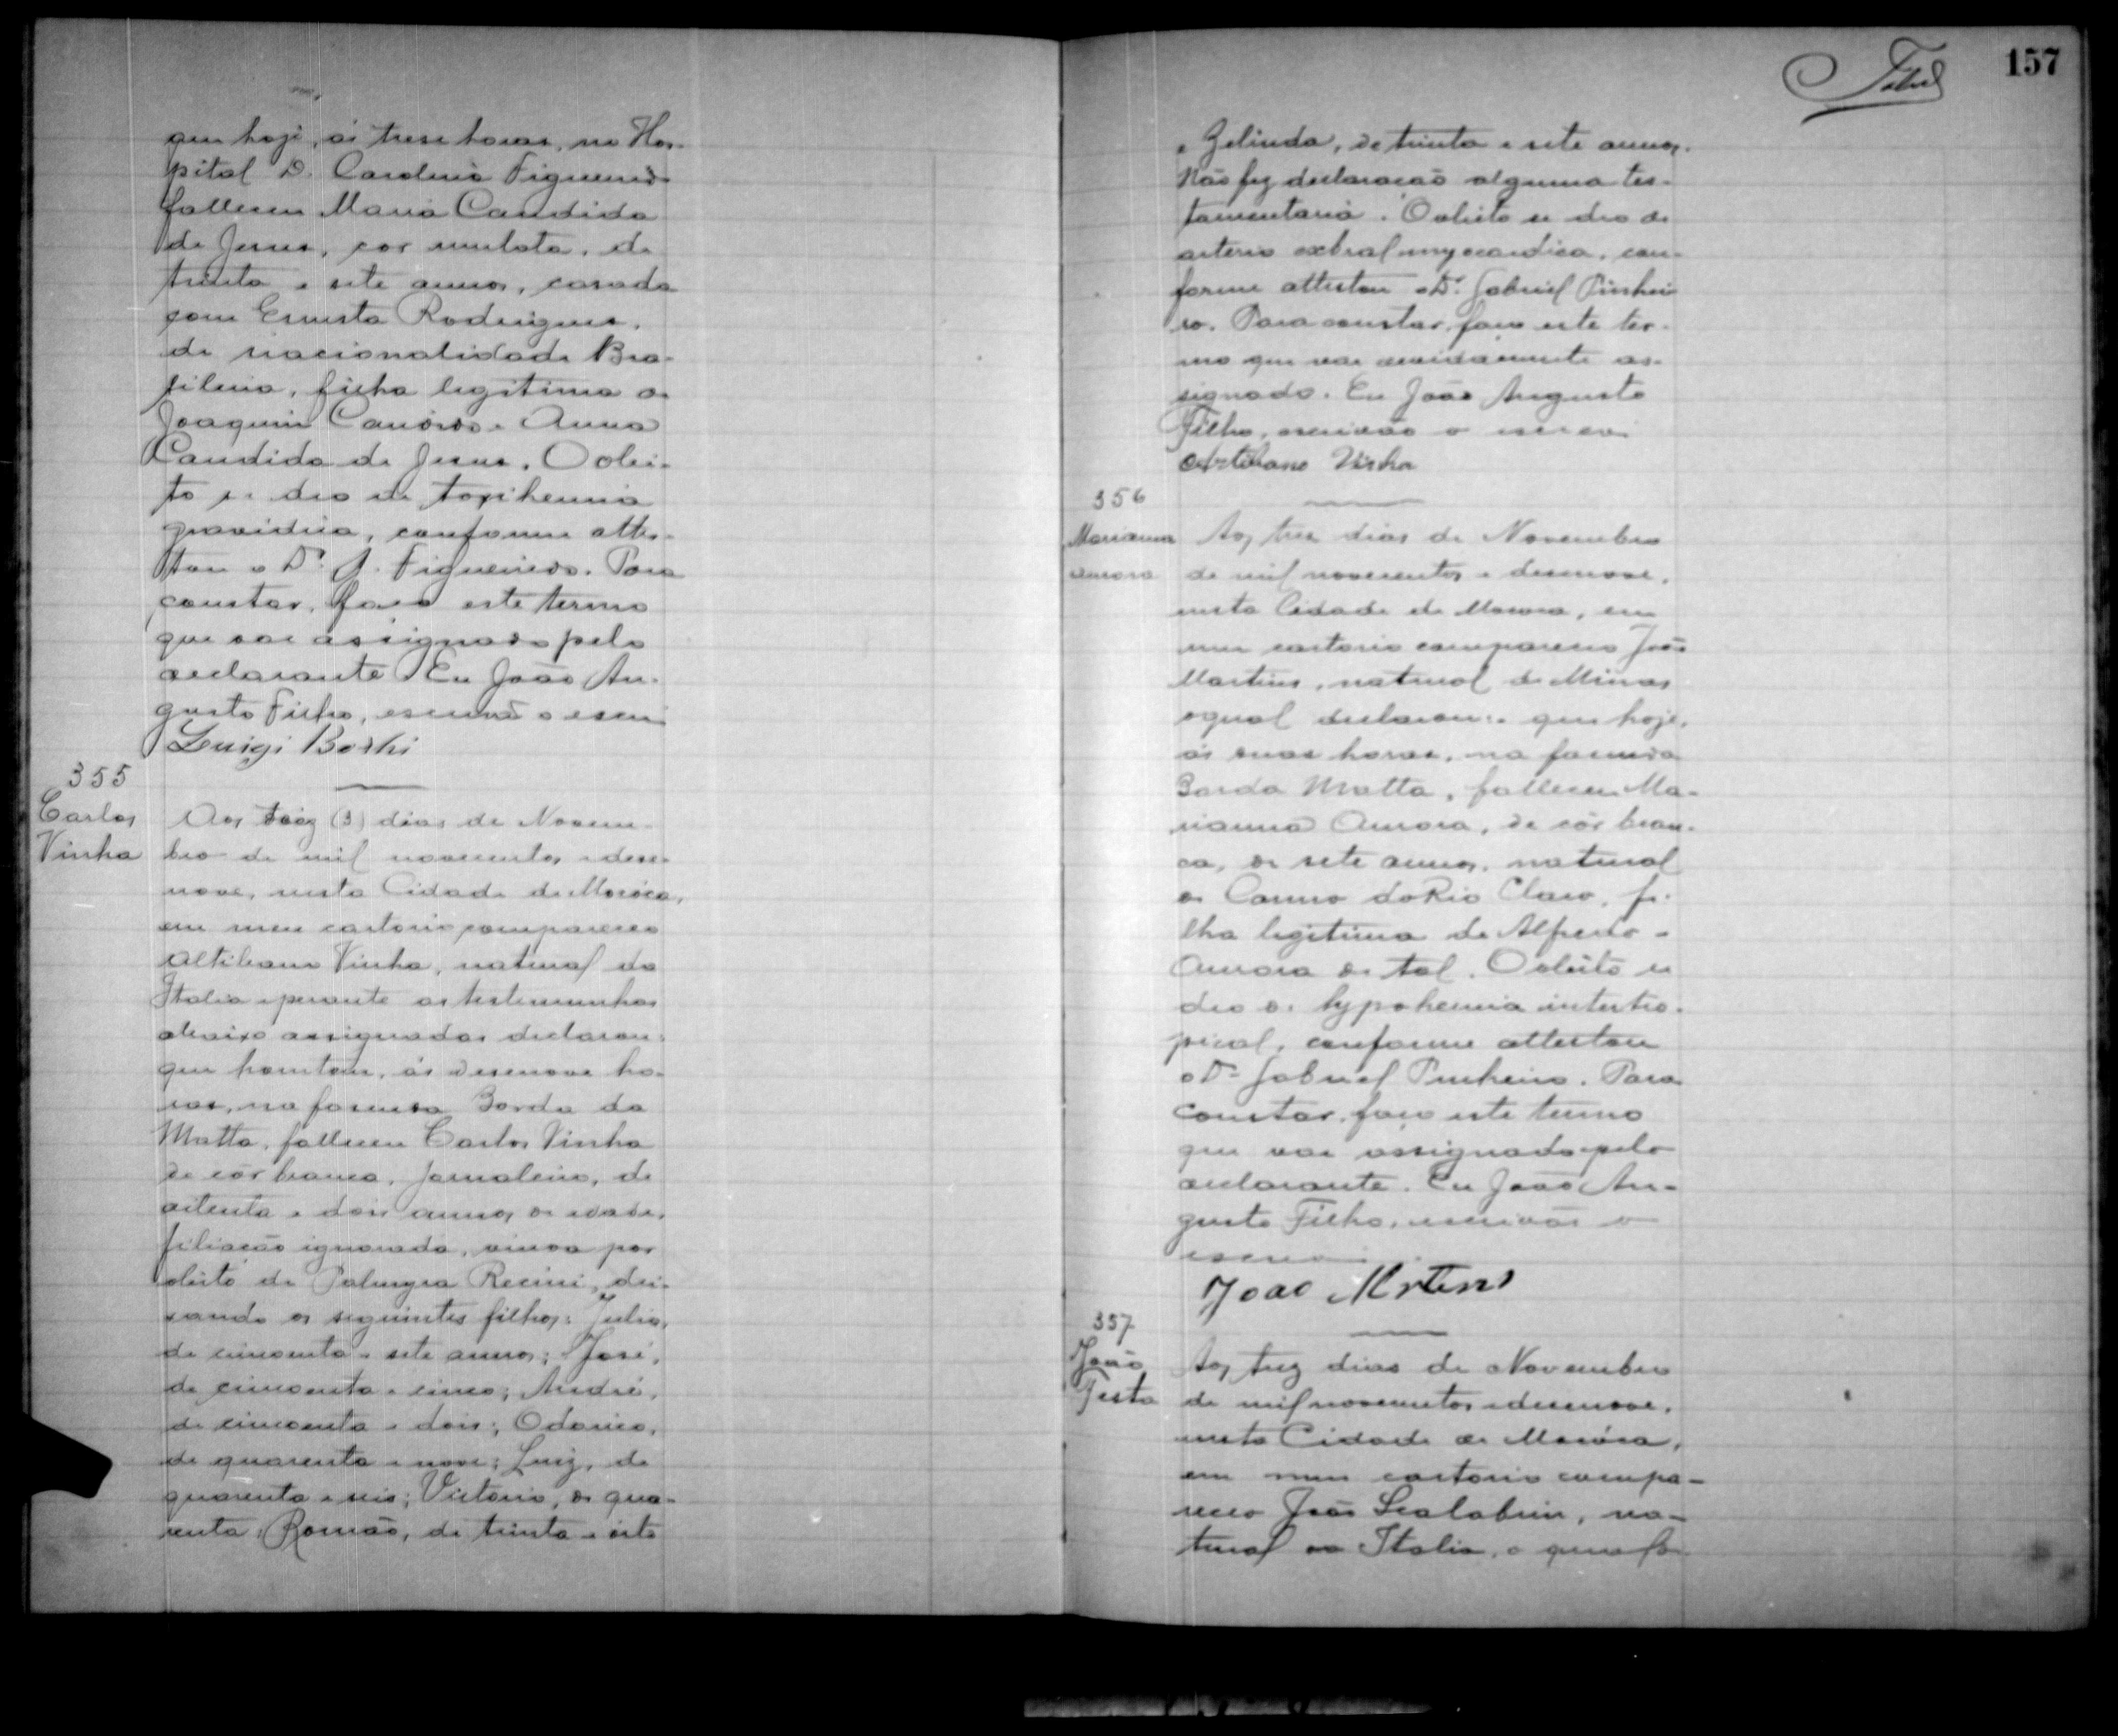 que hoje, ás trese horas, no Hos-
pital D. Carolina Figueiredo
falleceu Maria Candida
de Jesus, cor mulata, de
trinta e sete annos, casada
com Ernesto Rodrigues,
de nacionalidade Bra-
sileira, filha legitima de
Joaquim Candido e Anna
Candida de Jesus. O obi-
to se deu de toxihemia
gravidica, conforme attes-
tou o Dr. J. Figueiredo. Para
constar, faço este termo
que vae assignado pelo
declarante Eu João Au-
gusto Filho, escrivão o escrevi
Luigi Boshi
355
Carlos
Vinha
Aos trez (3) dias de Novem-
bro de mil novecentos e dese-
nove, nesta Cidade de Mocóca,
em meu cartorio compareceu
Altibano Vinha, natural da
Italia e perante as testemunhas
abaixo assignadas declarou:
que hontem, ás desenove ho-
ras, na fasenda Borda da
Matta, falleceu Carlos Vinha
de côr branca, jornaleiro, de
oitenta e dois annos de idade,
filiação ignorada, viuvo por
obito de Palmyra Recini, dei-
xando os seguintes filhos: Julio,
de cincoenta e sete annos; José,
de cincoenta e cinco; André,
de cincoenta e dois; Odorico,
de quarenta e nove; Luiz, de
quarenta e seis; Victorio, de qua-
renta; Romão, de trinta e oito
157
e Gelinda, de trinta e sete annos.
Não fez declaração alguma tes-
tamentaria. O obito se deu de
arterio myocardica, con-
forme attestou o Dr. Gabriel Pinhei-
ro. Para constar, faço este ter-
mo que vae devidamente as-
signado. Eu João Augusto
Filho, escrivão o escrevi
Artibano Vinha
356
Marianna
Aurora
Aos trez dias de Novembro
de mil novecentos e desenove,
nesta Cidade de Mococa, em
meu cartorio compareceu João
Martins, natural de Minas
o qual declarou: que hoje,
ás duas horas, na fasenda
Borda Matta, falleceu Ma-
rianna Aurora, de côr bran-
ca, de sete annos, natural
de Carmo do Rio Claro, fi-
lha legitima de Alfredo e
Aurora de tal. O obito se
deu de hypohemia intertro-
pical, conforme attestou
o Dr. Gabriel Pinheiro. Para
constar, faço este termo
que vae assignado pelo
declarante. Eu João Au-
gusto Filho, escrivão o
escrevi
Joao Mrtens
357
João
Testa
Aos trez dias de Novembro
de mil novecentos e desenove,
nesta Cidade de Mocóca,
em meu cartorio compa-
receu João Scalabrin, na-
tural da Italia, o qual